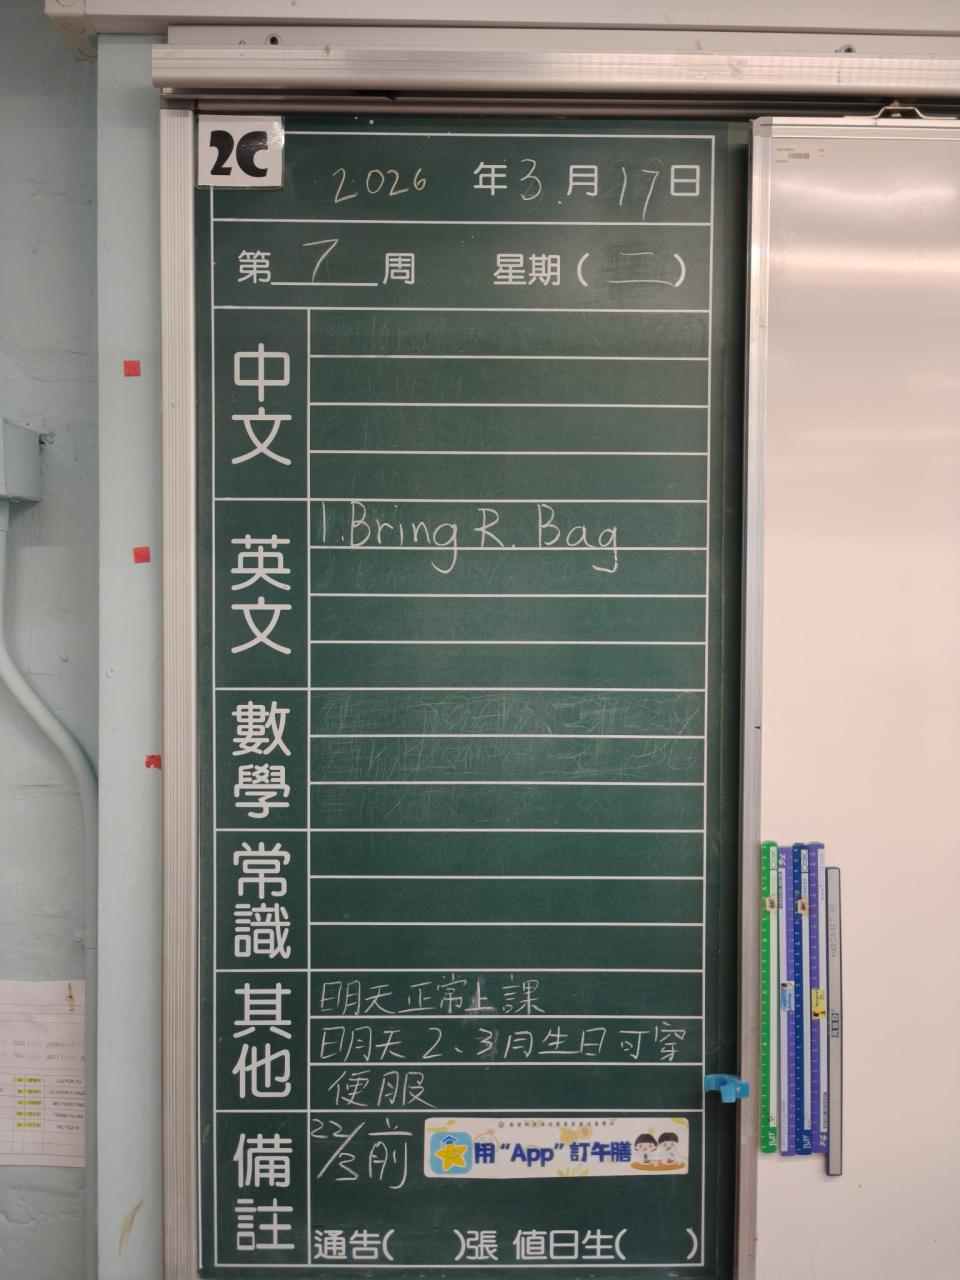 2C
2026 年 3 月 17 日
第 7 周 星期 ( 二 )
中文
英文
1. Bring R. Bag
數學
常識
其他
明天正常上課
明天 2、3月生日可穿
便服
備註
22/3 前
用 “App” 訂午膳
通告( )張 值日生( )